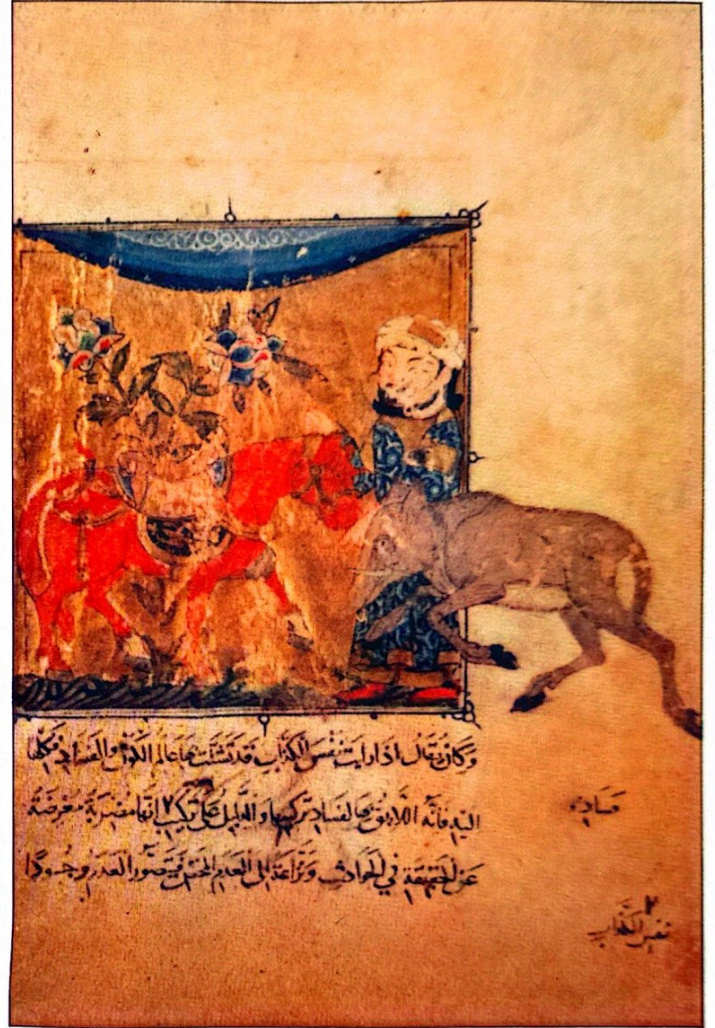 وكان يقال اذا رايت نفس الكذاب قد تشبثت بها عالم الكون والفساد فكلها
اليه فانه اللائق بها لفساد تركيبها والدليل على تركيب انها معرضة
عن الحقيقة في الحوادث ونزاعة الى العدم المحض فتصور العدم وجودا
نفس الكذاب